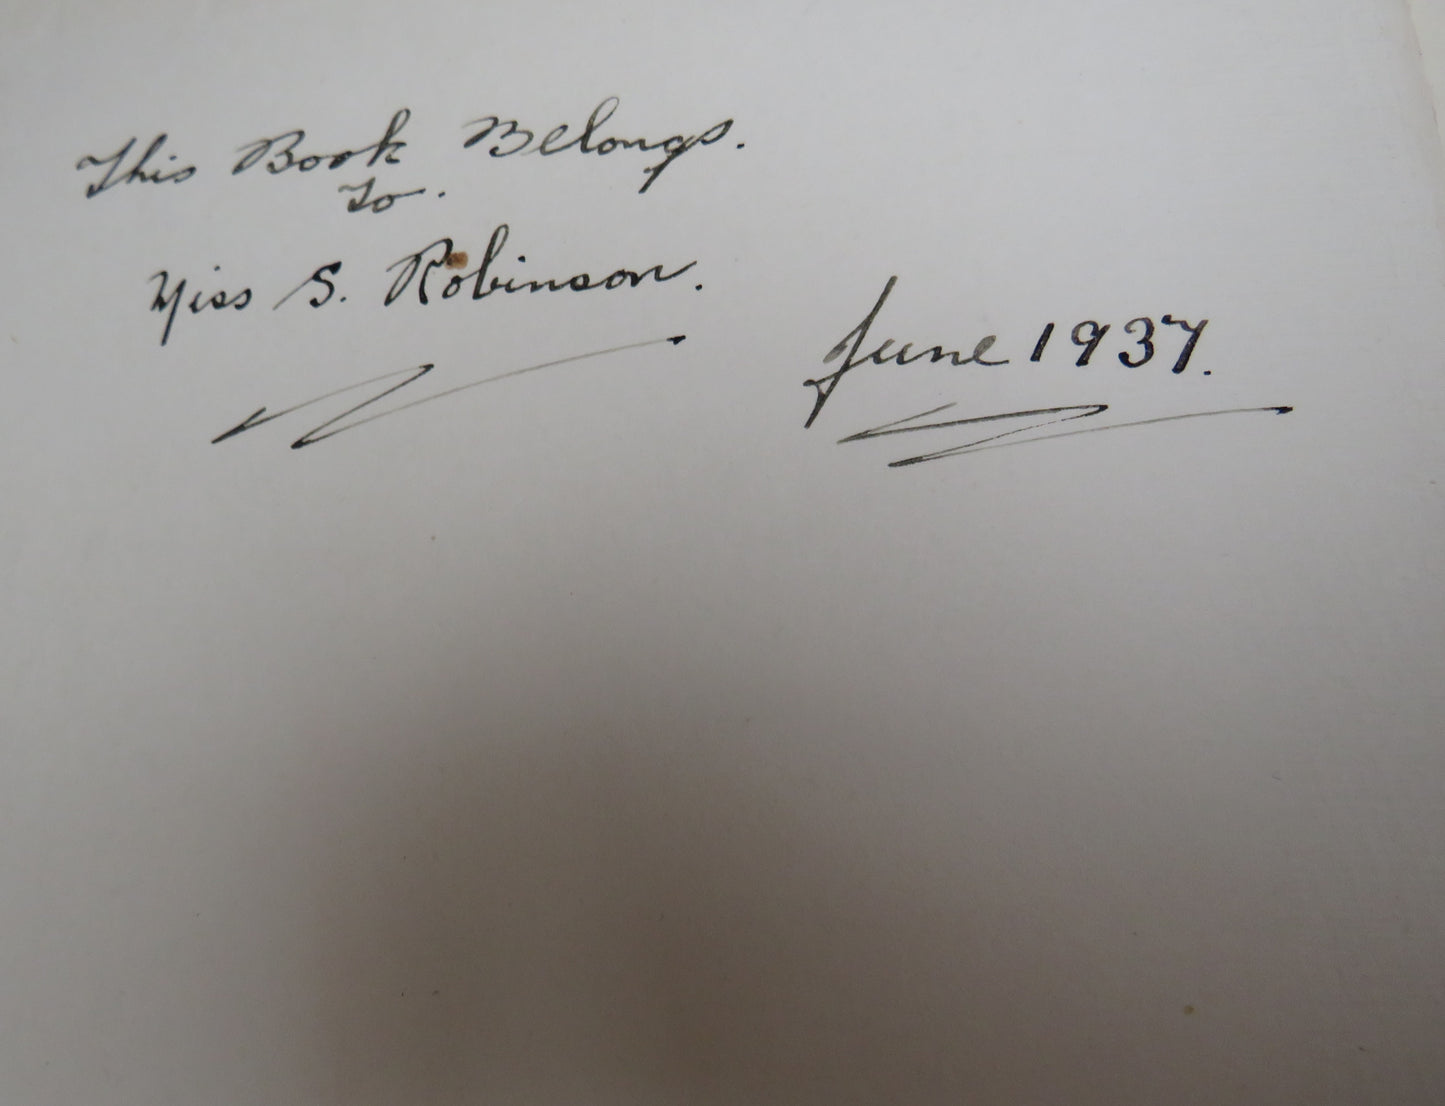 This Book Belongs.
To.
Miss S. Robinson.
June 1937.